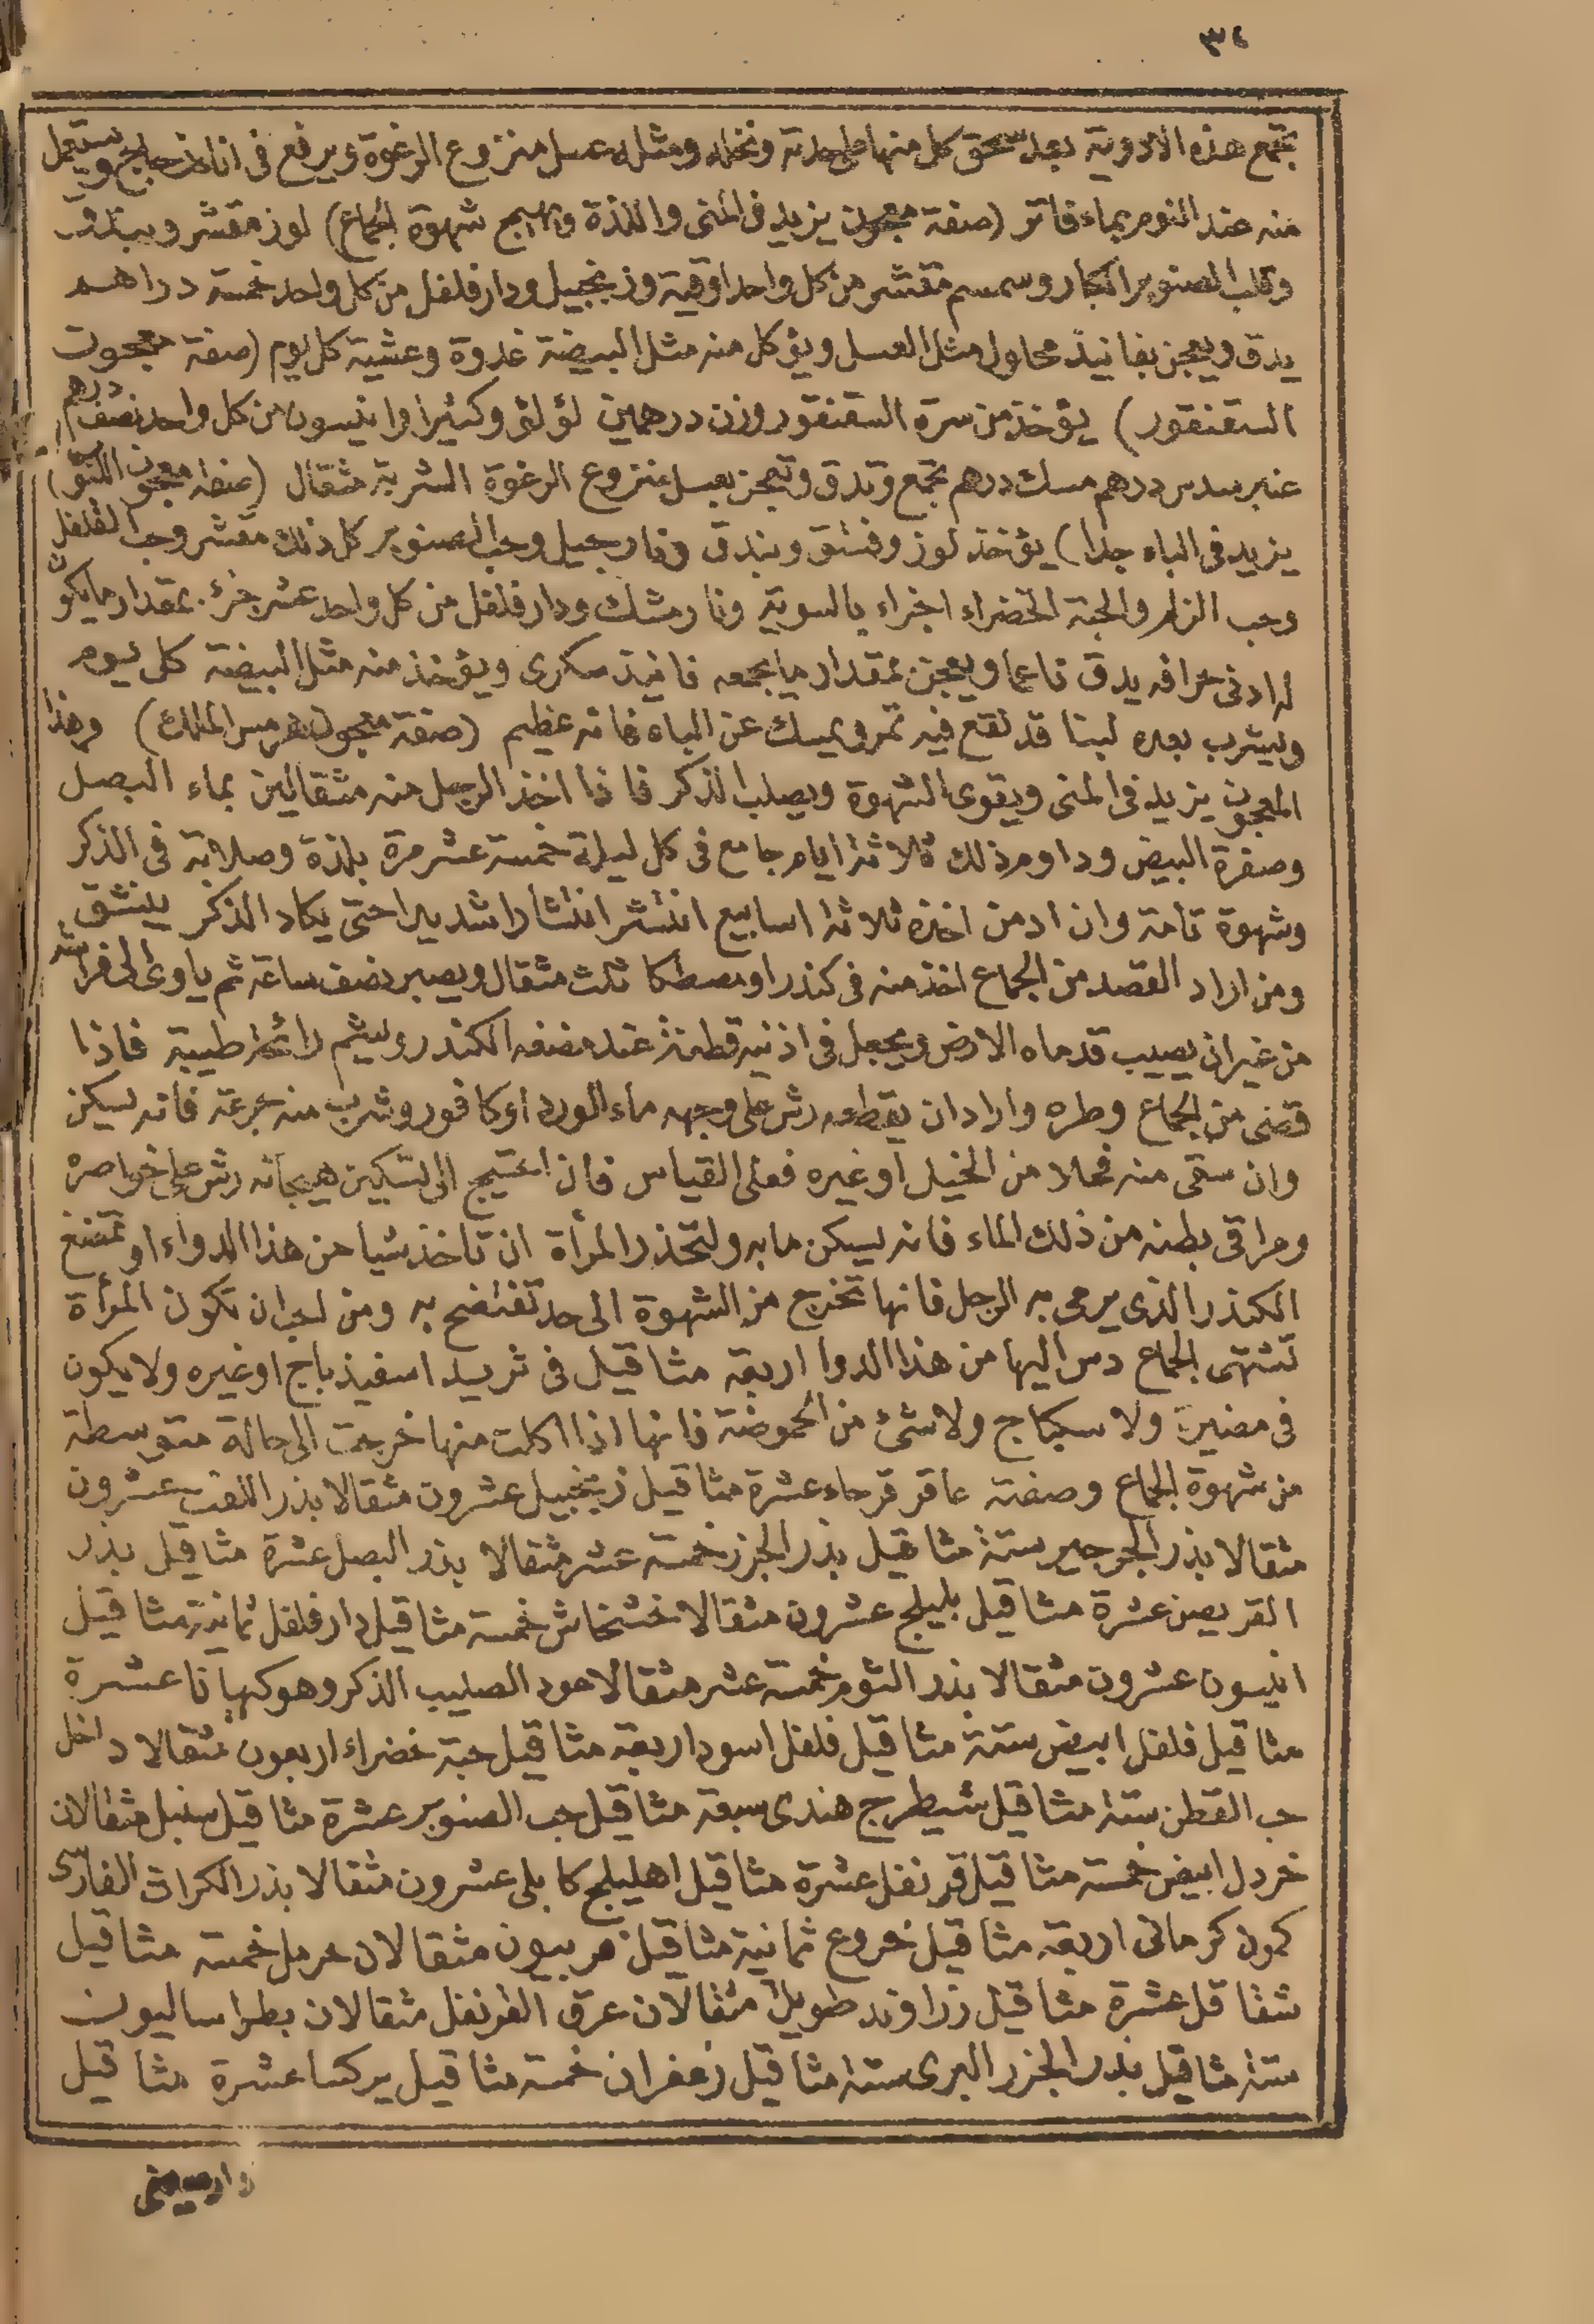 ٣٤
تجمع هذه الادوية بعد سحق كل منها على حدته ونخله ومثله عسل منزوع الرغوة ويرفع فى اناء زجاج ويستعمل
منه عند النوم بماء فاتر (صفة معجون يزيد فى المنى واللذة ويهيج شهوة الجماع) لوز مقشر وبندق
وقلب الصنوبر الكبار وسمسم مقشر من كل واحد اوقية وزنجبيل ودار فلفل من كل واحد خمسة دراهم
يدق ويعجن بفانيذ محلول مثل العسل ويؤكل منه مثل البيضة غدوة وعشية كل يوم (صفة معجون
السقنقور) يؤخذ من سرة السقنقور وزن درهمين لؤلؤ وكثيرا وانيسون من كل واحد نصف درهم
عنبر سدس درهم مسك درهم تجمع وتدق وتعجن بعسل منزوع الرغوة الشربة مثقال (صفة معجون المتو)
يزيد فى الباء جدا) يؤخذ لوز وفستق وبندق ونارجيل وحب الصنوبر كل ذلك مقشر وحب الفلفل
وحب الزلم والحبة الخضراء اجزاء بالسوية ونارمشك ودار فلفل من كل واحد عشر جزء بمقدار ما يكون
له ادنى حرافه يدق ناعما ويعجن بمقدار ما يجمعه فانيذ سكرى ويؤخذ منه مثل البيضة كل يوم
ويشرب بعده لبنا قد نقع فيه تمر ويمسك عن الباه فانه عظيم (صفة معجون هرمس الملك) وهذا
المعجون يزيد فى المنى ويقوى الشهوة ويصلب الذكر فاذا اخذ الرجل منه مثقالين بماء البصل
وصفرة البيض وداوم ذلك ثلاثة ايام جامع فى كل ليلة خمسة عشر مرة بلذة وصلابة فى الذكر
وشهوة تامة وان ادمن اخذه ثلاثة اسابيع انتشر انتشارا شديدا حتى يكاد الذكر ينشق
ومن اراد القصد من الجماع اخذ منه فى كندر او مصطكا ثلث مثقال ويصبر نصف ساعة ثم ياوى الى فراشه
من غير ان يصيب قدماه الارض ويجعل فى اذنيه قطنة عند مضغه الكندر وليشم رائحة طيبة فاذا
قضى من الجماع وطره واراد ان يقطعه رش على وجهه ماء الورد او كافور وشرب منه جرعة فانه يسكن
وان سقى منه فحلا من الخيل او غيره فعلى القياس فان احتيج الى تسكين هيجانه رش على خواصره
ومراقى بطنه من ذلك الماء فانه يسكن ما به ولتحذر المرأة ان تاخذ شيا من هذا الدواء او تمضغ
الكندر الذى يرمى به الرجل فانها تخرج من الشهوة الى حد تفتضح به ومن احب ان تكون المرأة
تشتهى الجماع دس اليها من هذا الدوا اربعة مثاقيل فى ثريد اسفيذباج او غيره ولا يكون
فى مضيرة ولا سكباج ولا شئ من الحموضة فانها اذا اكلت منها خرجت الى حالة متوسطة
من شهوة الجماع وصفته عاقر قرحاء عشرة مثاقيل زنجبيل عشرون مثقالا بذر اللفت عشرون
مثقالا بذر الجرجير ستة مثاقيل بذر الجزر خمسة عشر مثقالا بذر البصل عشرة مثاقيل بذر
القريص عشرة مثاقيل بليلج عشرون مثقالا خشخاش خمسة مثاقيل دار فلفل ثمانية مثاقيل
انيسون عشرون مثقالا بذر الثوم خمسة عشر مثقالا عود الصليب الذكر وهو كهيانا عشرة
مثاقيل فلفل ابيض ستة مثاقيل فلفل اسود اربعة مثاقيل حبة خضراء اربعون مثقالا داخل
حب القطن ستة مثاقيل شيطرج هندى سبعة مثاقيل حب الصنوبر عشرة مثاقيل سنبل مثقالان
خردل ابيض خمسة مثاقيل قرنفل عشرة مثاقيل اهليلج كابلى عشرون مثقالا بذر الكراث الفارسى
كمون كرمانى اربعة مثاقيل خروع ثمانية مثاقيل فربيون مثقالان حرمل خمسة مثاقيل
شقاقل عشرة مثاقيل زراوند طويل مثقالان عرق القرنفل مثقالان بطراساليون
ستة مثاقيل بذر الجزر البرى ستة مثاقيل زعفران خمسة مثاقيل يركسا عشرة مثاقيل
دارصينى